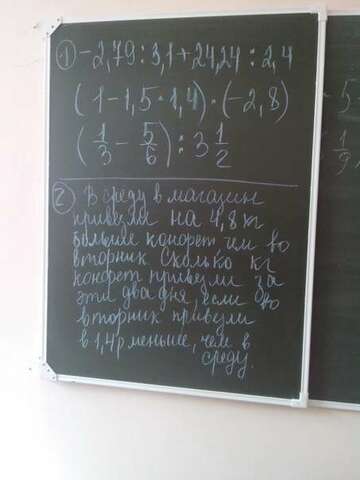 ① -2,79 : 3,1 + 24,24 : 2,4
(1 - 1,5 · 1,4) · (-2,8)
(1/3 - 5/6) : 3 1/2
② В среду в магазин
привезли на 4,8 кг
больше конфет чем во
вторник Сколько кг
конфет привезли за
эти два дня, если во
вторник привезли
в 1,4 р меньше, чем в
среду.
5
1/9